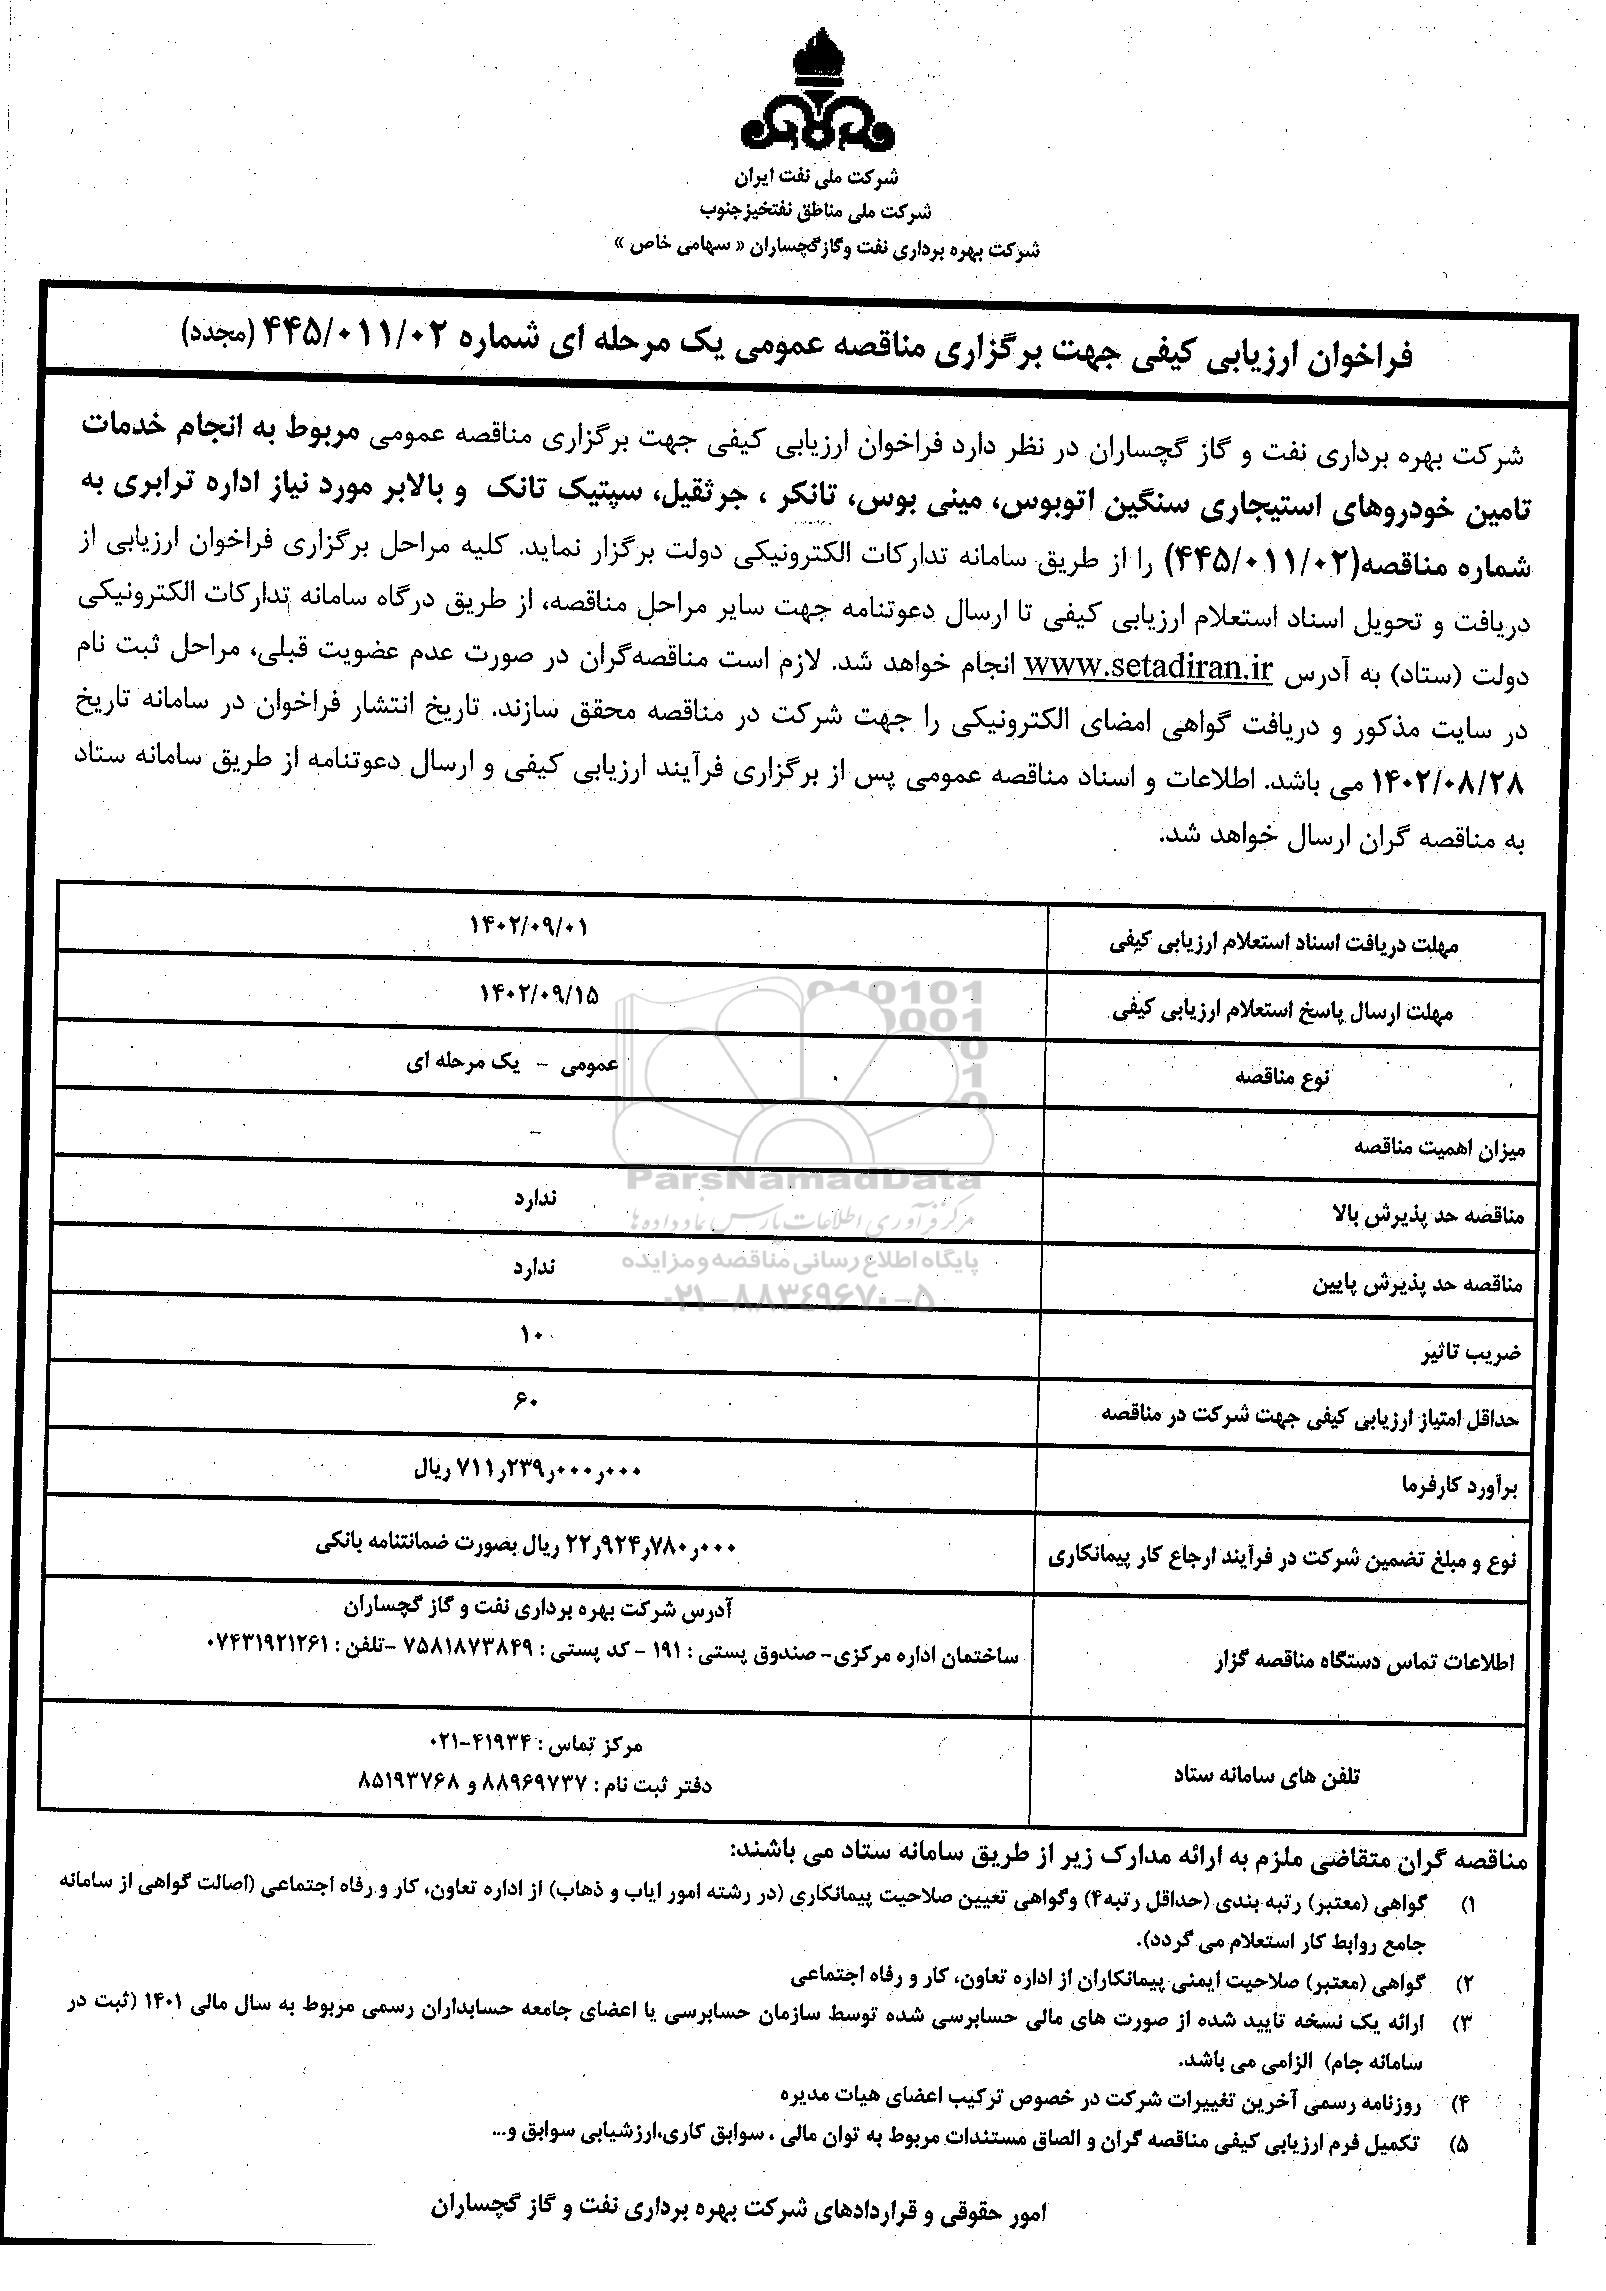 شرکت ملی نفت ایران
شرکت ملی مناطق نفتخیزجنوب
شرکت بهره برداری نفت وگازگچساران « سهامی خاص »
فراخوان ارزیابی کیفی جهت برگزاری مناقصه عمومی یک مرحله ای شماره ۴۴۵/۰۱۱/۰۲ (مجدد)
شرکت بهره برداری نفت و گاز گچساران در نظر دارد فراخوان ارزیابی کیفی جهت برگزاری مناقصه عمومی مربوط به انجام خدمات
تامین خودروهای استیجاری سنگین اتوبوس، مینی بوس، تانکر ، جرثقیل، سپتیک تانک و بالابر مورد نیاز اداره ترابری به
شماره مناقصه(۴۴۵/۰۱۱/۰۲) را از طریق سامانه تدارکات الکترونیکی دولت برگزار نماید. کلیه مراحل برگزاری فراخوان ارزیابی از
دریافت و تحویل اسناد استعلام ارزیابی کیفی تا ارسال دعوتنامه جهت سایر مراحل مناقصه، از طریق درگاه سامانه تدارکات الکترونیکی
دولت (ستاد) به آدرس www.setadiran.ir انجام خواهد شد. لازم است مناقصه‌گران در صورت عدم عضویت قبلی، مراحل ثبت نام
در سایت مذکور و دریافت گواهی امضای الکترونیکی را جهت شرکت در مناقصه محقق سازند. تاریخ انتشار فراخوان در سامانه تاریخ
۱۴۰۲/۰۸/۲۸ می باشد. اطلاعات و اسناد مناقصه عمومی پس از برگزاری فرآیند ارزیابی کیفی و ارسال دعوتنامه از طریق سامانه ستاد
به مناقصه گران ارسال خواهد شد.
مهلت دریافت اسناد استعلام ارزیابی کیفی
۱۴۰۲/۰۹/۰۱
مهلت ارسال پاسخ استعلام ارزیابی کیفی
۱۴۰۲/۰۹/۱۵
نوع مناقصه
عمومی - یک مرحله ای
میزان اهمیت مناقصه
-
مناقصه حد پذیرش بالا
ندارد
مناقصه حد پذیرش پایین
ندارد
ضریب تاثیر
۱۰
حداقل امتیاز ارزیابی کیفی جهت شرکت در مناقصه
۶۰
برآورد کارفرما
۷۱۱٫۲۳۹٫۰۰۰٫۰۰۰ ریال
نوع و مبلغ تضمین شرکت در فرآیند ارجاع کار پیمانکاری
۲۲٫۹۲۴٫۷۸۰٫۰۰۰ ریال بصورت ضمانتنامه بانکی
اطلاعات تماس دستگاه مناقصه گزار
آدرس شرکت بهره برداری نفت و گاز گچساران
ساختمان اداره مرکزی- صندوق پستی : ۱۹۱ - کد پستی : ۷۵۸۱۸۷۳۸۴۹ -تلفن : ۰۷۴۳۱۹۲۱۲۶۱
تلفن های سامانه ستاد
مرکز تماس : ۴۱۹۳۴-۰۲۱
دفتر ثبت نام : ۸۸۹۶۹۷۳۷ و ۸۵۱۹۳۷۶۸
مناقصه گران متقاضی ملزم به ارائه مدارک زیر از طریق سامانه ستاد می باشند:
۱) گواهی (معتبر) رتبه بندی (حداقل رتبه۴) وگواهی تعیین صلاحیت پیمانکاری (در رشته امور ایاب و ذهاب) از اداره تعاون، کار و رفاه اجتماعی (اصالت گواهی از سامانه
جامع روابط کار استعلام می گردد).
۲) گواهی (معتبر) صلاحیت ایمنی پیمانکاران از اداره تعاون، کار و رفاه اجتماعی
۳) ارائه یک نسخه تایید شده از صورت های مالی حسابرسی شده توسط سازمان حسابرسی یا اعضای جامعه حسابداران رسمی مربوط به سال مالی ۱۴۰۱ (ثبت در
سامانه جام) الزامی می باشد.
۴) روزنامه رسمی آخرین تغییرات شرکت در خصوص ترکیب اعضای هیات مدیره
۵) تکمیل فرم ارزیابی کیفی مناقصه گران و الصاق مستندات مربوط به توان مالی ، سوابق کاری،ارزشیابی سوابق و...
امور حقوقی و قراردادهای شرکت بهره برداری نفت و گاز گچساران
ParsNamadData
مرکز فرآوری اطلاعات پارس نماد داده ها
پایگاه اطلاع رسانی مناقصه و مزایده
۰۲۱-۸۸۳۴۹۶۷۰-۵